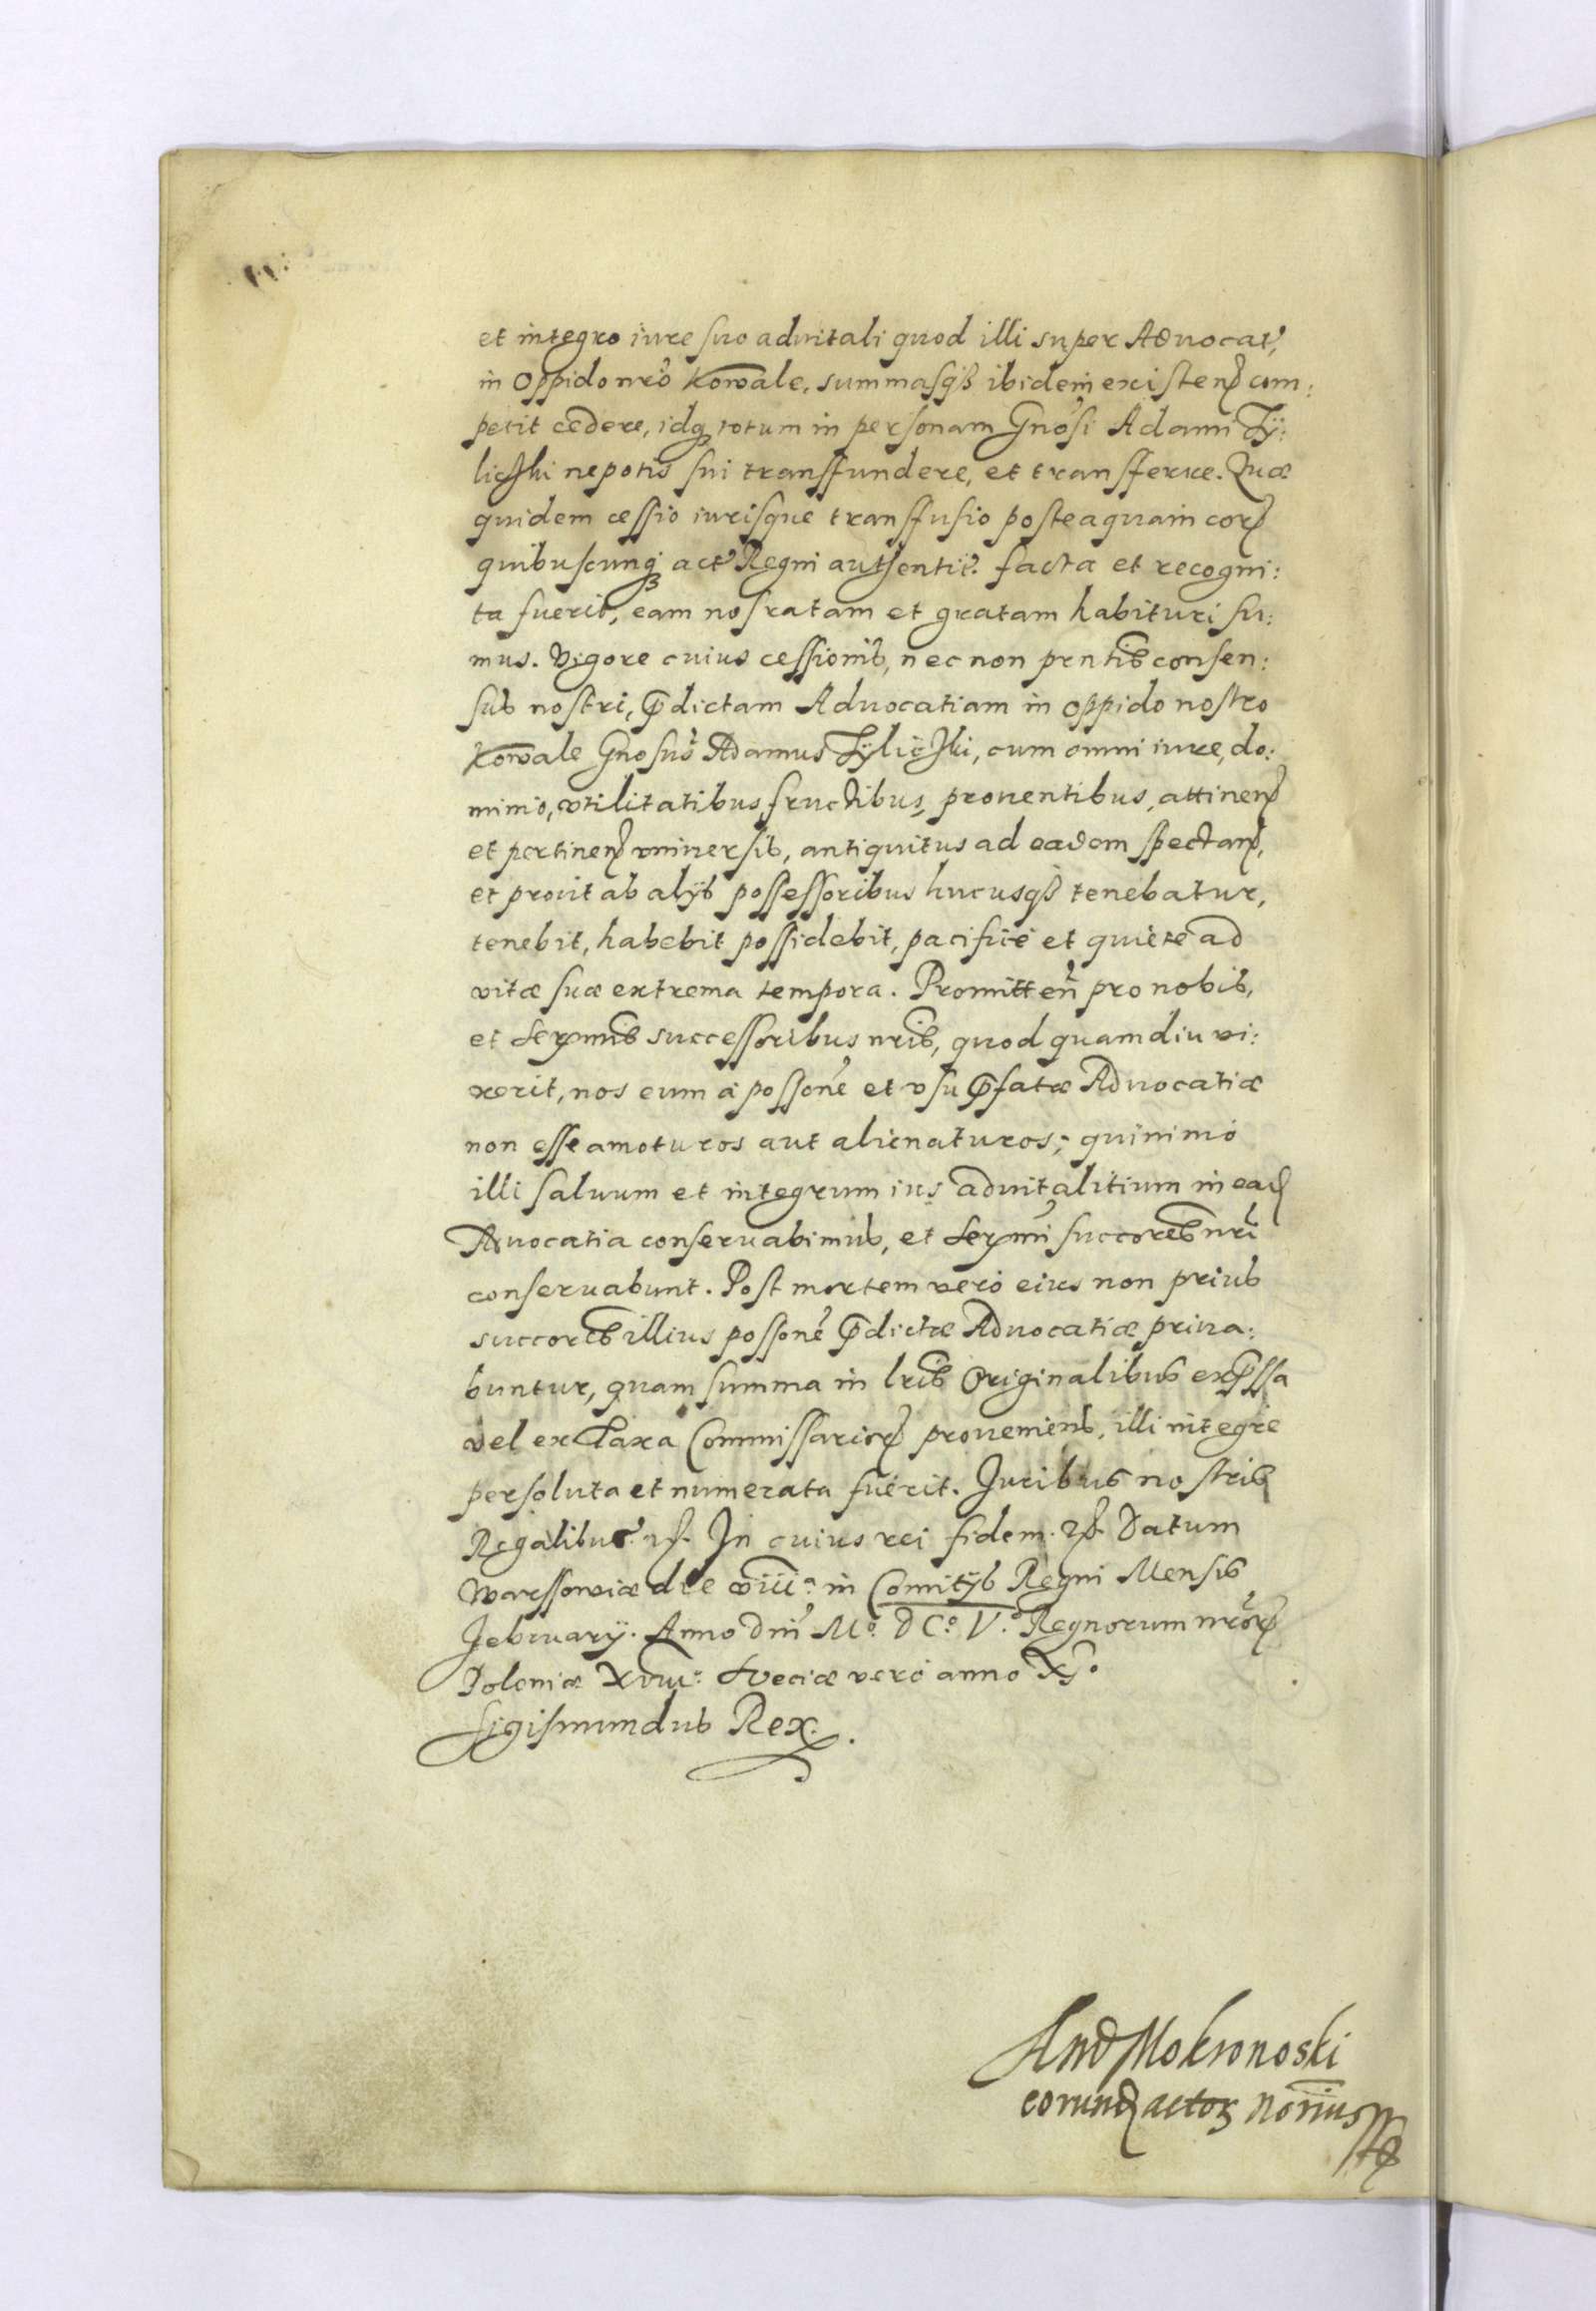 et integro iure suo aduitali quod illi super Aduocat,
in Oppido nro Kowale, summasq ibidem existen com:
petit cedere, idq totum in personam Gnosi Adami Ty:
licski nepotis sui transfundere, et transferre. Quæ
quidem cessio iurisque transfusio posteaquam cor
quibuscunq act Regni authentic. facta et recogni:
ta fuerit, eam nos ratam et gratam habituri su:
mus. Vigore cuius cessionis, nec non prntis consen:
sus nostri, prædictam Aduocatiam in oppido nostro
Kowale Gnosus Adamus Tylicski, cum omni iure, do:
minio, vtilitatibus, fructibus, prouentibus, attinen
et pertinen vniuersis, antiquitus ad eadem spectan,
et prout ab alys possessoribus hucusq tenebatur,
tenebit, habebit possidebit, pacificè et quietè ad
vitæ suæ extrema tempora. Promitten pro nobis,
et Sermis successoribus nris, quod quamdiu vi:
xerit, nos eum à possone et vsu præfatæ Aduocatiæ
non esse amoturos aut alienaturos; quinimò
illi saluum et integrum ius aduitalitium in ead
Aduocatia conseruabimus, et Sermi succores nri
conseruabunt. Post mortem verò eius non prius
succores illius possone prædictæ Aduocatiæ priua:
buntur, quam summa in lris Originalibus expssa
vel ex taxa Commissarior proueniens, illi integrè
persoluta et numerata fuerit. Juribus nostris
Regalibus. &. In cuius rei fidem. &. Datum
Warssowiæ die viiia. in Comitys Regni Mensis
February. Anno Dni Mo. DCo. Vo. Regnorum nror
Poloniæ Xviii. Sueciæ verò anno XIo.
Sigismundus Rex.
And Mokronoski
eorund actor Norius